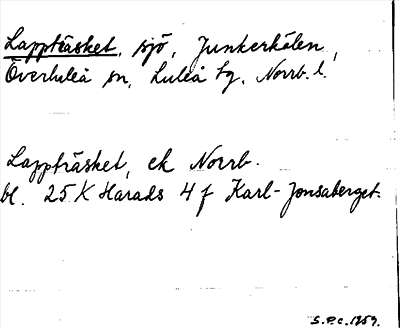 Lappträsket, sjö, Junkerhålen,
Överluleå sn, Luleå tg, Norrb. l.
Lappträsket, ek Norrb.
bl. 25 K Harads 4 f Karl-Jonsaberget.
S.P.C. 1959.